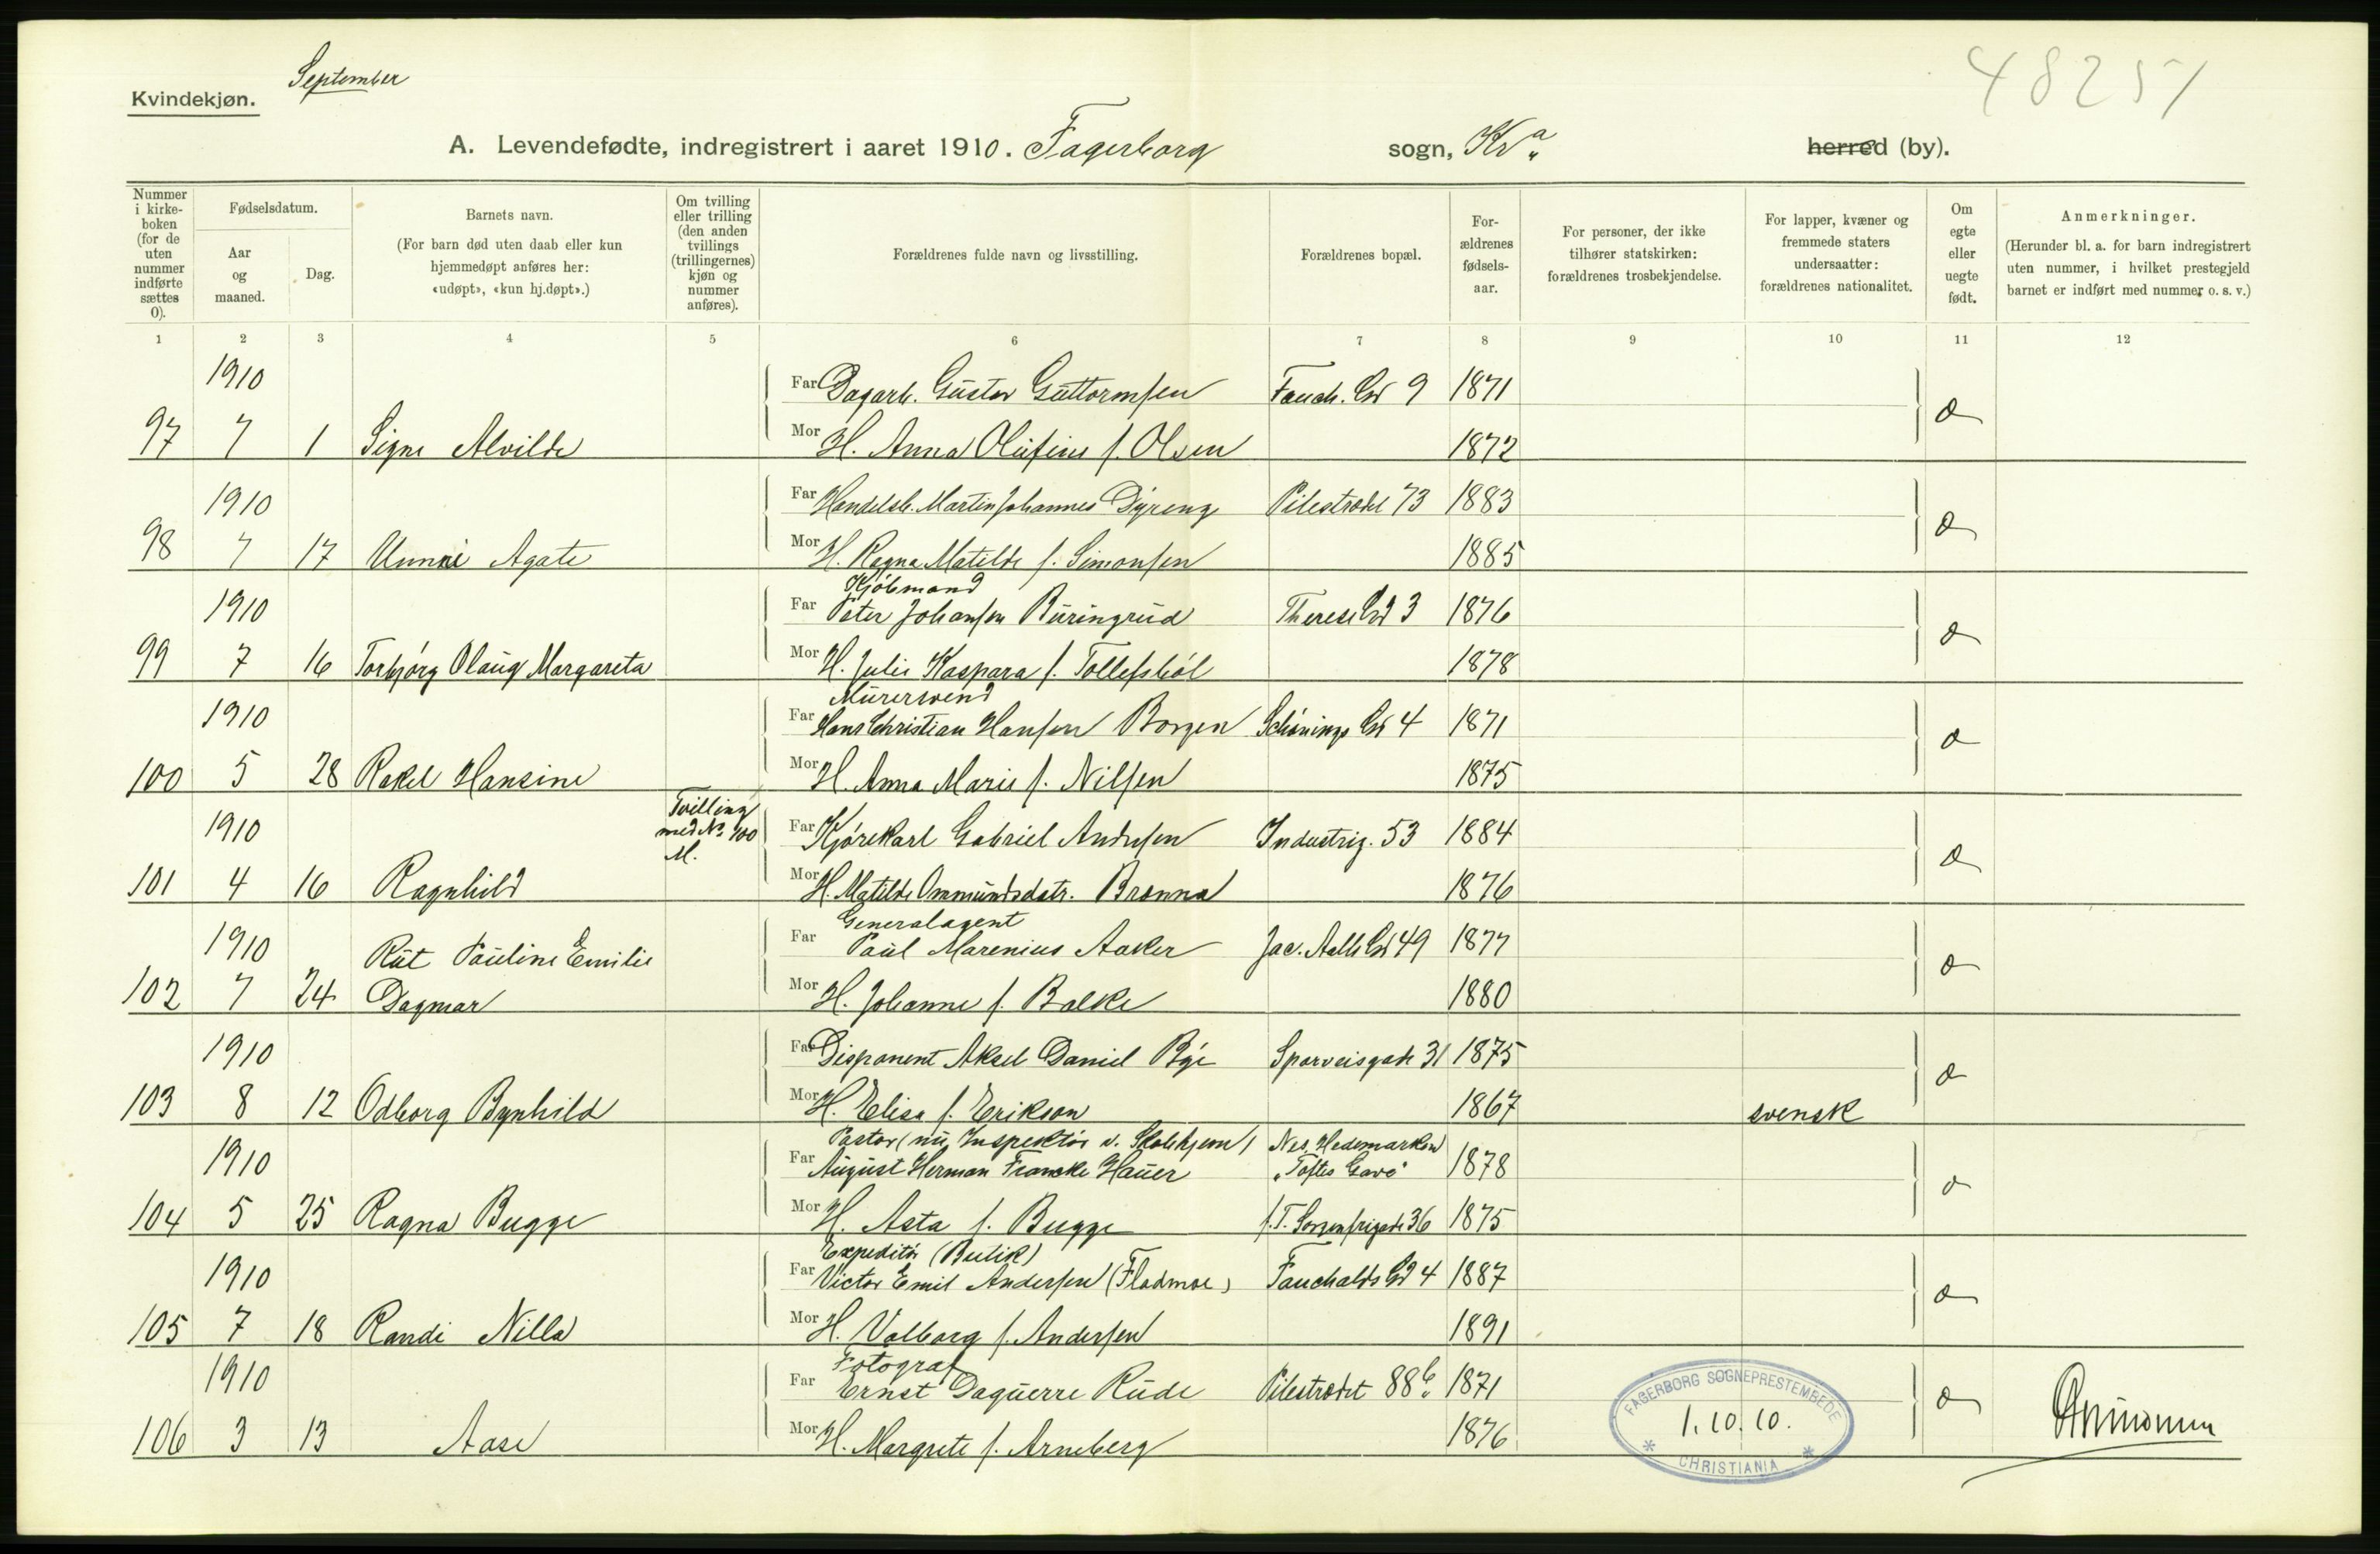 September
48251
Kvindekjøn.
A. Levendefødte, indregistrert i aaret 1910. Fagerborg sogn, Kr a herred (by).
Nummer i kirkeboken (for de uten nummer indførte sættes 0).
Fødselsdatum.
Aar og maaned.
Dag.
Barnets navn.
(For barn død uten daab eller kun hjemmedøpt anføres her: «udøpt», «kun hj.døpt».)
Om tvilling eller trilling (den anden tvillings (trillingernes) kjøn og nummer anføres).
Forældrenes fulde navn og livsstilling.
Forældrenes bopæl.
For-ældrenes fødsels-aar.
For personer, der ikke tilhører statskirken: forældrenes trosbekjendelse.
For lapper, kvæner og fremmede staters undersaatter: forældrenes nationalitet.
Om egte eller uegte født.
Anmerkninger.
(Herunder bl. a. for barn indregistrert uten nummer, i hvilket prestegjeld barnet er indført med nummer o. s. v.)
1 2 3 4 5 6 7 8 9 10 11 12
1910 Far Dagarb. Gustav Guttormsen Fauch. Gd 9 1871
97 7 1 Signe Alvilde Mor H. Anna Olufine f. Olsen 1872
1910 Far Handelsb. Martin Johannes Dyreng Pilestrædet 73 1883
98 7 17 Unni Agate Mor H. Ragna Matilde f. Simonsen 1885
Kjøbmand
1910 Far Peter Johansen Buringrud Therese Gd 3 1876
99 7 16 Torbjørg Olaug Margareta Mor H. Julie Kaspara f. Tollefsbøl 1878
Murersvend
1910 Far Hans Christian Hansen Borgen Schønings Gd 4 1871
100 5 28 Rakel Hansine Mor H. Anna Marie f. Nilsen 1875
Tvilling med No. 100 M.
1910 Far Kjørekarl Gabriel Andersen Industrig. 53 1884
101 4 16 Ragnhild Mor H. Matilde Ommundsdatr. Brønna 1876
Generalagent
1910 Rut Pauline Emilie Far Paul Marenius Aaker Jac. Aalls Gd 49 1877
102 7 24 Dagmar Mor H. Johanne f. Balke 1880
1910 Far Disponent Aksel Daniel Bye Sporveisgade 31 1875
103 8 12 Odborg Bynhild Mor H. Elise f. Erikson 1867 svensk
Pastor (nu Inspektør v. Skolehjem) Nes, Hedemarken
1910 Far August Herman Francke Hauer "Toftes Gave" 1878
104 5 25 Ragna Bugge Mor H. Asta f. Bugge f.T. Sorgenfrigade 36 1875
Expeditør (Butik)
1910 Far Victor Emil Andersen (Fladmoe) Fauchalds Gd 4 1887
105 7 18 Randi Nilla Mor H. Valborg f. Andersen 1891
Fotograf
1910 Far Ernst Daguerre Rude Pilestrædet 88 b. 1871
106 3 13 Aase Mor H. Margrete f. Arneberg 1876
FAGERBORG SOGNEPRESTEMBEDE
1.10.10.
* CHRISTIANIA *